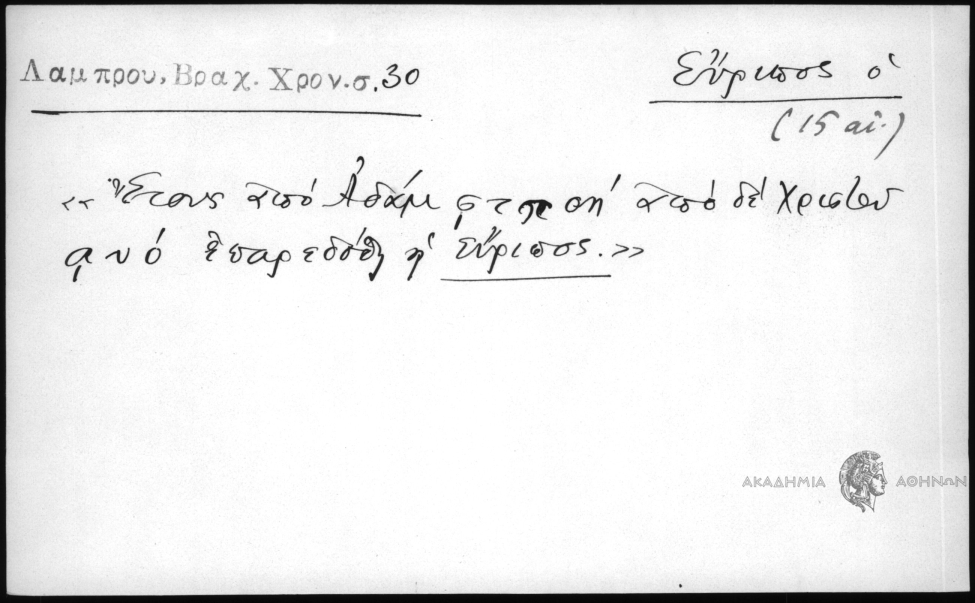 Λαμπρου, Βραχ. Χρον. σ. 30
Εὔριπος ὁ
(15 αἰ.)
«Ἔτους ἀπό Ἀδάμ ϛ ἀπό δέ Χριστοῦ
αυό ἐπαρεδόθη ἡ Εὔριπος.»
ΑΚΑΔΗΜΙΑ ΑΘΗΝΩΝ